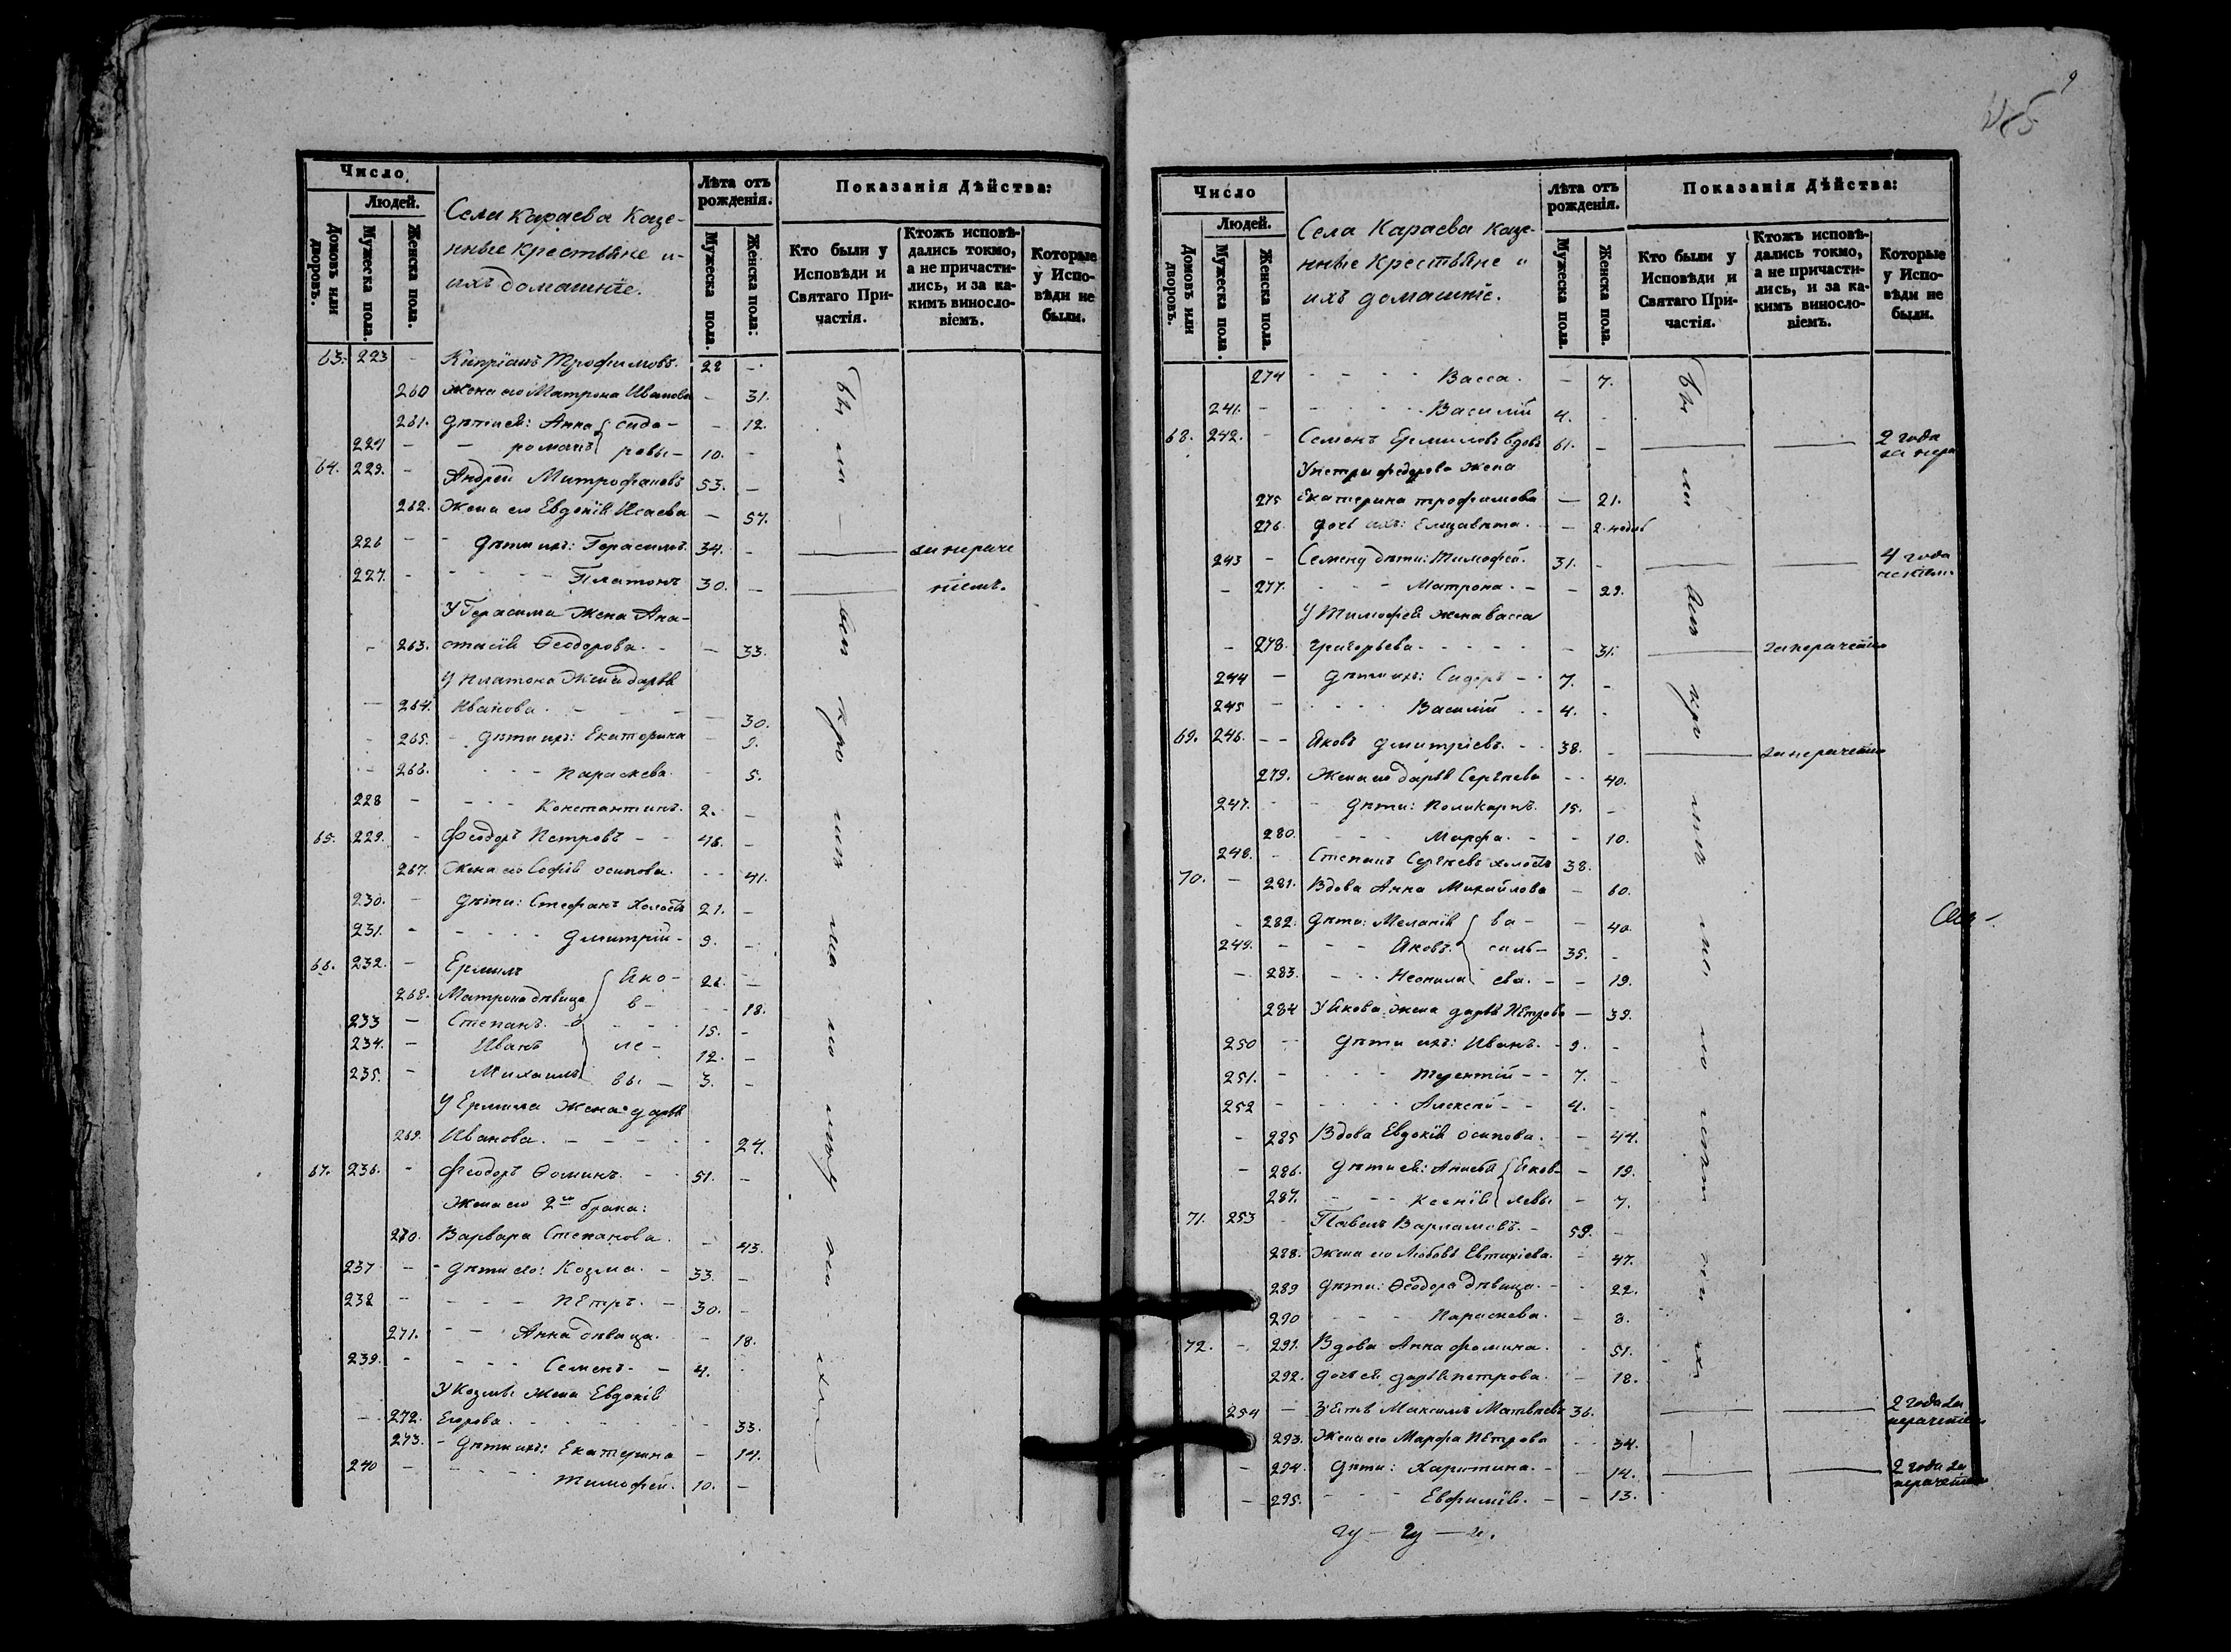 Число
Людей.
Домовъ или дворовъ.
Мужеска пола.
Женска пола.
Села Караева Казе-
нные крестьяне и
ихъ домашніе.
Лѣта отъ рожденія.
Мужеска пола.
Женска пола.
Показанія Дѣйства:
Кто были у Исповѣди и Святаго Причастія.
Ктожъ исповѣдались токмо, а не причастились, и за какимъ винословіемъ.
Которые у Исповѣди не были.
63. 223 - Кипріанъ Трофимовъ. 22 -
260 Жена его Матрона Иванова - 31.
261. Дѣти ея: Анна Сидо- - 12.
224 - - Романъ ровы - 10. -
64. 225. - Андрей Митрофановъ 53. -
262. Жена его Евдокія Исаева - 57.
226 - - Дѣти ихъ: Герасимъ. 34. - за нераче
227. - - - - Платонъ 30. - ніемъ.
У Герасима жена Ана-
- 263. стасія Ѳеодорова. - - 33.
У Платона жена Дарья
- 264. Иванова. - - - - 30.
- 265. - Дѣти ихъ: Екатерина - 9.
- 266. - - - Параскева. - 5.
228 - - - - Константинъ. 2. -
65. 229. - Феодоръ Петровъ - - 46. -
267. Жена его Софія Осипова. - - 41.
230. - Дѣти: Стефанъ холостъ 21. -
231. - - - - - Дмитрій - 9. -
66. 232. - Ермилъ Яко- 26. -
268. Матрона дѣвица в- - 18.
233 - Степанъ. - - - 15. -
234. - Иванъ ле- 12. -
235. - Михаилъ вы - 3. -
У Ермила жена Дарья
269. Иванова. - - - - - 24.
67. 236. - Феодоръ Ѳоминъ. - - 51. -
Жена его 2го брака:
270. Варвара Степанова. - 43.
237 - - Дѣти его: Козма. - 33. -
238 - - - - Петръ. - 30. -
271. - - Анна дѣвица. - 18.
239. - - - - Семенъ. - 4. -
У Козмы жена Евдокія
- 272. Егорова. - - - - 33.
273. - Дѣти ихъ: Екатерина - 14.
240 - - - - Тимофей. 10. -
9
Число
Людей.
Домовъ или дворовъ.
Мужеска пола.
Женска пола.
Села Караева Казе-
нные крестьяне и
ихъ домашніе.
Лѣта отъ рожденія.
Мужеска пола.
Женска пола.
Показанія Дѣйства:
Кто были у Исповѣди и Святаго Причастія.
Ктожъ исповѣдались токмо, а не причастились, и за какимъ винословіемъ.
Которые у Исповѣди не были.
274 - - - - Васса. - 7.
241. - - - - - Василій 4. -
68. 242. - Семенъ Ермиловъ вдовъ 61. - 2 года
жена
275 Екатерина Трофимова - 21.
276. Дочь ихъ: Елизавета. - - 2.
243 - Семену дѣти: Тимофей. 31. - 4 года
- 277. - - - Матрона. - - 29.
У Тимофея жена Васса
- 278. Григорьева. - - - - - 31. за нераченіе
244 - Дѣти ихъ: Сидоръ - 7. -
245 - - - - - Василій - - 4. -
69. 246. - - Яковъ Дмитріевъ. - - 38. - за нераченіе
279. Жена его Дарья Сергѣева - - 40.
247. - - Дѣти: Поликарпъ. 15. -
280. - - - Марфа. - - 10.
248. - Степанъ Сергѣевъ холостъ 38.
70. - 281. Вдова Анна Михайлова - 60.
- 282. Дѣти: Меланія Ва- - 40.
249. - - - Яковъ. силь- 35. -
- 283. - - Неонила ева. - - 19.
284 У Якова жена Дарья Петрова - 39.
250 - - Дѣти ихъ: Иванъ. - 9. -
251. - - - - Терентій - - 7. -
252 - - - - - Алексѣй - - 4. -
- 285 Вдова Евдокія Осипова. - - 44.
- 286. Дѣти ея: Анисья Яков- - 19.
287. - - - Ксенія левы - 7.
71. 253 - Павелъ Варламовъ. - 59. -
288. Жена его Любовь Евтихіева. - 47.
289 Дѣти: Ѳеодора дѣвица. - - 22.
290 - - - Параскева. - 8.
72. - 291. Вдова Анна Фомина. - 51.
292. Дочь ея Дарья Петрова. - 18.
254 - Зять Максимъ Матвѣевъ 36. 2 года за нераченіе
293. Жена его Марфа Петрова - - 34.
- 294. Дѣти: Харитина. - - 14. 2 года за нераченіе
- 295. - - - Евфимія. - - 13.